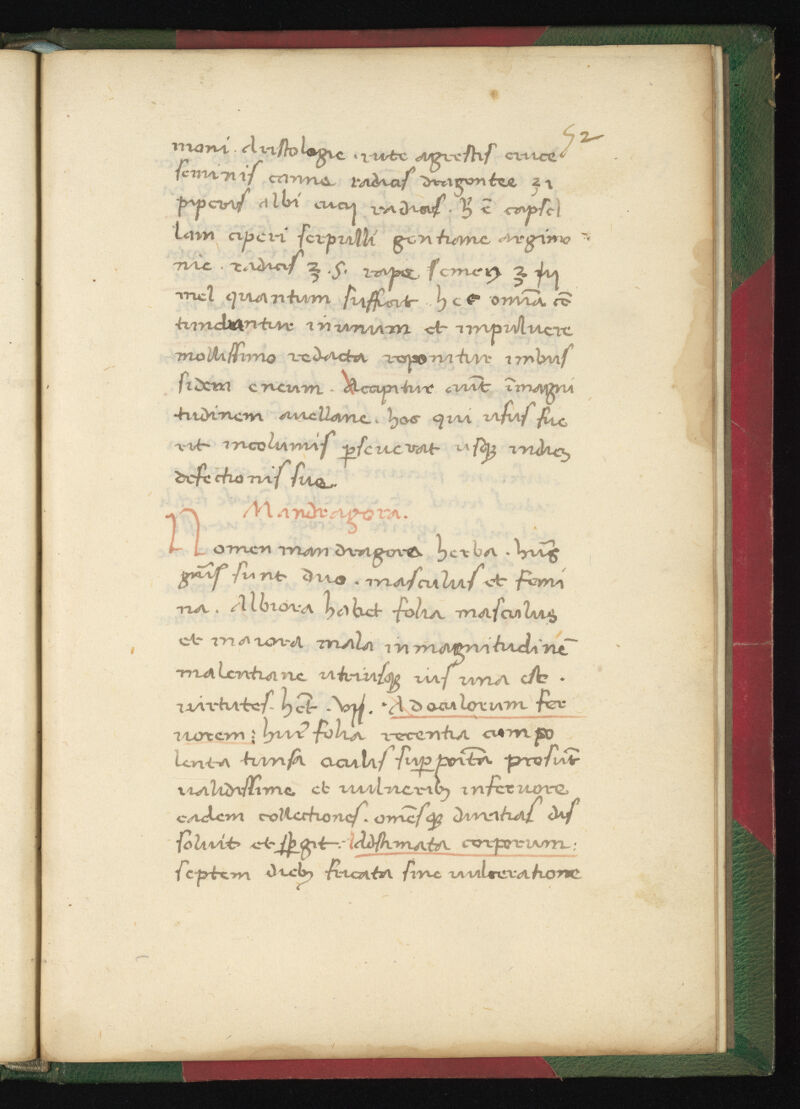 52
moni. Aristologie. rute agrestis eruce
seminis canne radicis dragontee ʒ i
piperis albi eucy radicis. h̄ ē capsel
lam ciperi serpulli gentiane argimo
nie. radicis ʒ. s. rape semen ʒ iij
mel quantum sufficit. hec om̄ia cō
tundantur inunum et impulvere
mollissimo redacta reponitur imbus
sidem eneum. Accipitur aūt īmagni
tudinem avellane. hos qui usus fue
rit incolumis ꝑseverat usqꝫ indiem
defectionis sue.
Mandragora.
Nomen mandragore herba. huiꝰ
gn̄is sunt duo. masculus et femi
na. Albiora habet folia masculus
et maiora mala inmagnitudinē
malentiane utriusqꝫ vis una est.
virtutes. hēt. vij. Adoculorum fer
vorem: huiꝰ folia recentia cum po
lenta tunsa oculis suꝑpoīta prosūt
validissime et vulneribꝫ infervore
eadem collectiones. omēsqꝫ duritias dis
soluit et sꝑgit. Adstimata corporum:
septem diebꝫ fricata sine vulceratione